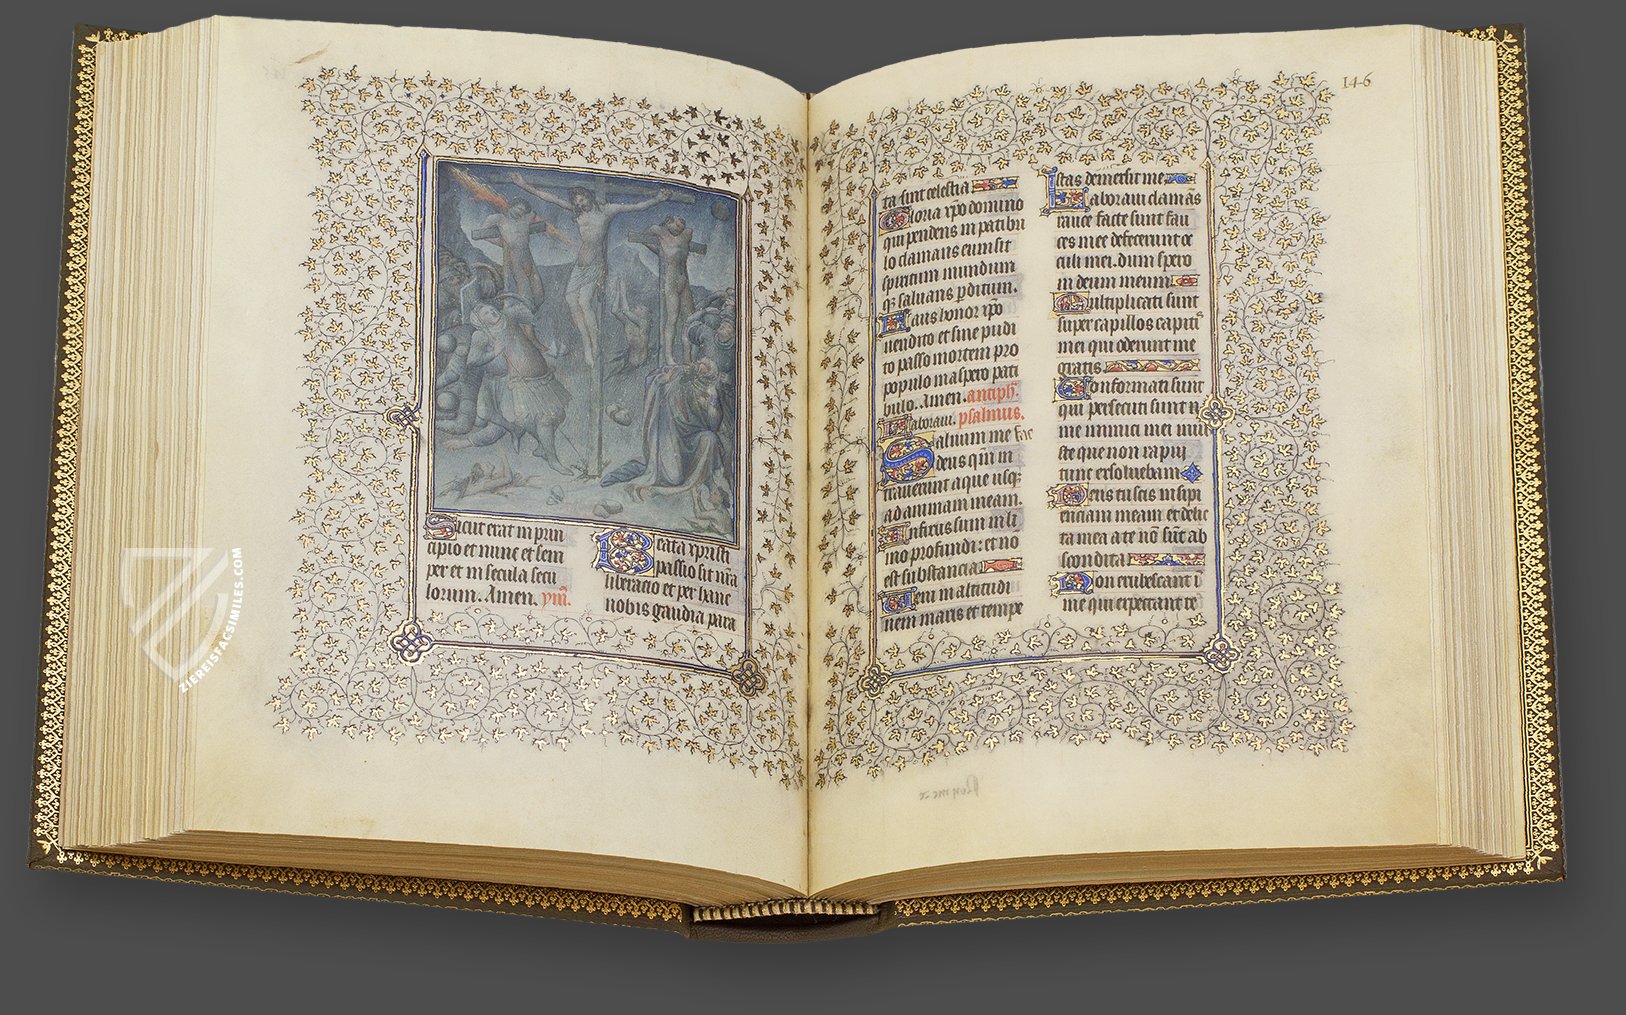 Sicut erat in prin
cipio et nunc et sem
per et in secula secu
lorum. Amen. ym̃.
Beata xp̃risti
passio sit nr̃a
liberacio et per hanc
nobis gaudia para
14-6
ta sint celestia
Gloria xp̃o domino
qui pendens in patibu
lo clamans emisit
spiritum mundum
qꝫ saluans ꝑditum.
Laus honor xp̃o
uendito et sine pudi
to passo mortem pro
populo in aspero pati
bulo. Amen. antiph̃.
Laboraui. psalmus.
Saluum me fac
deus qm̃ in
trauerunt aque usqꝫ
ad animam meam.
Infixus sum in li
mo profundi: et nõ
est substancia
Ueni in altitudi
nem maris et tempe
stas demersit me
Laboraui clamãs
rauce facte sunt fau
ces mee defecerunt oc
culi mei. dum spero
in deum meum
Multiplicati sunt
super capillos capitis
mei qui oderunt me
gratis
Confortati sunt
qui persecuti sunt
me inimici mei iniu
ste que non rapui
tunc exsoluebam
Deus tu scis insipi
enciam meam et delic
ta mea a te nõ sũt ab
scondita
Non erubescant i
me qui expectant te
ZIEREISFACSIMILES.COM